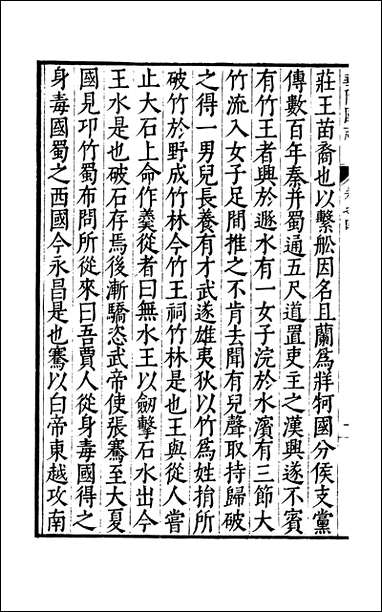 莊王苗裔也以繫舩因名且蘭為牂牁國分侯支黨
傳數百年秦并蜀通五尺道置吏主之漢興遂不賓
有竹王者興於遯水有一女子浣於水濱有三節大
竹流入女子足間推之不肯去聞有兒聲取持歸破
之得一男兒長養有才武遂雄夷狄以竹為姓捐所
破竹於野成竹林今竹王祠竹林是也王與從人嘗
止大石上命作羹從者曰無水王以劒擊石水出今
王水是也破石存焉後漸驕恣武帝使張騫至大夏
國見卭竹蜀布問所從來曰吾賈人從身毒國得之
身毒國蜀之西國今永昌是也騫以白帝東越攻南